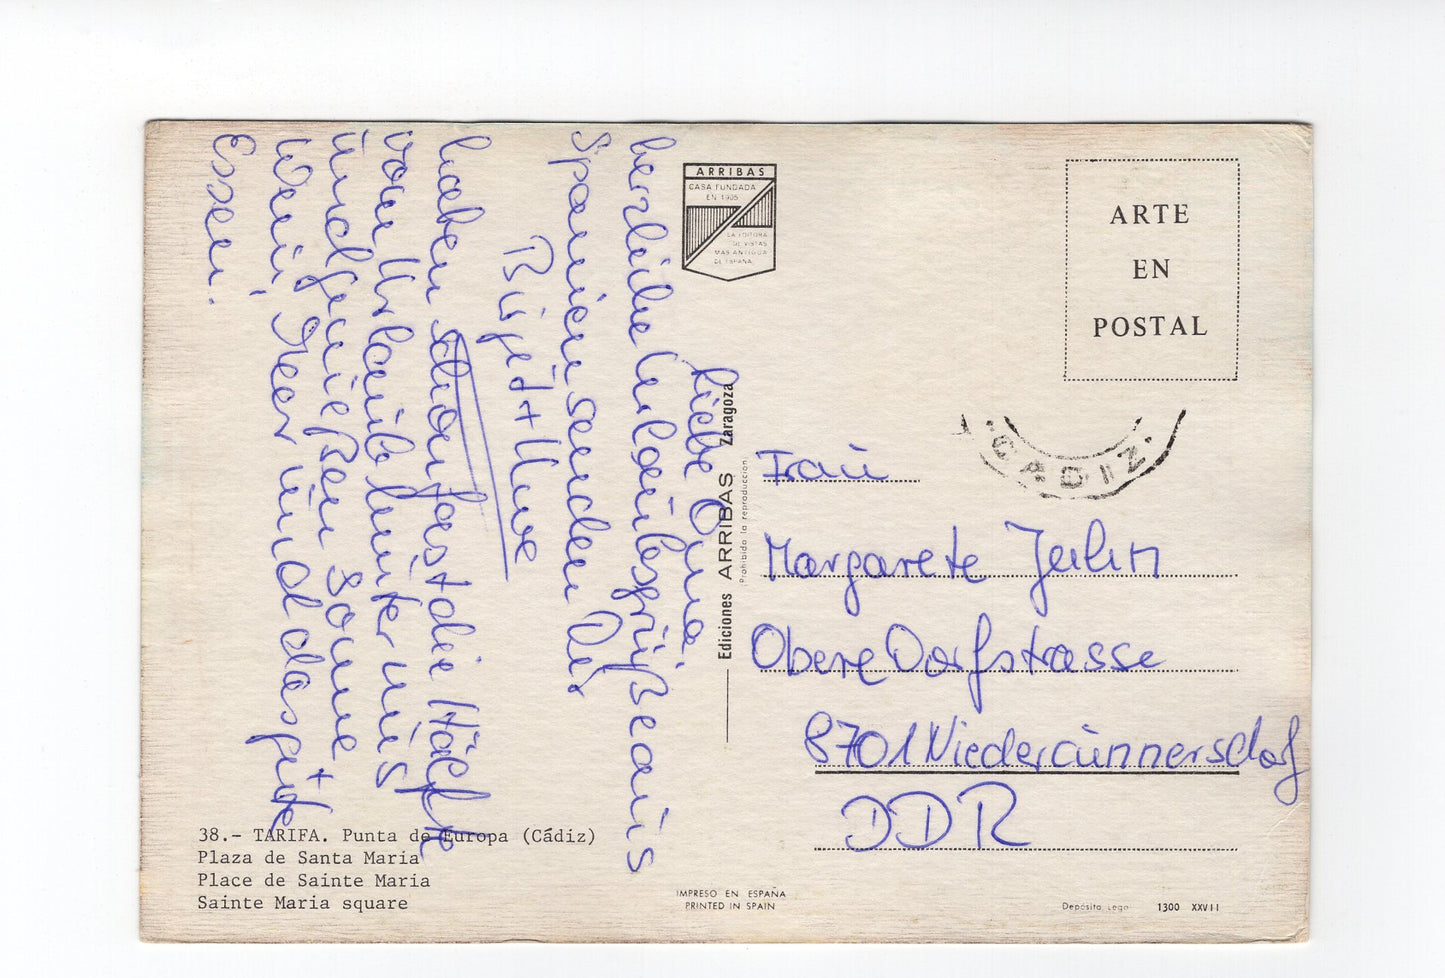 Liebe Oma,
herzliche Urlaubsgrüße aus
Spanien senden Dir
Birgit + Uwe
haben schon fast die Hälfte
vom Urlaub hinter uns
und genießen Sonne +
Wein, Meer und das gute
Essen.
ARRIBAS
CASA FUNDADA
EN 1905
LA EDITORA
DE VISTAS
MAS ANTIGUA
DE ESPAÑA
ARTE
EN
POSTAL
CADIZ
Frau
Margarete
Obere Dorfstrasse
8701 Niedercunnersdorf
DDR
Ediciones ARRIBAS Zaragoza
(Prohibida la reproducción)
38.- TARIFA. Punta de Europa (Cádiz)
Plaza de Santa Maria
Place de Sainte Maria
Sainte Maria square
IMPRESO EN ESPAÑA
PRINTED IN SPAIN
Depósito Lega 1300 XXVII